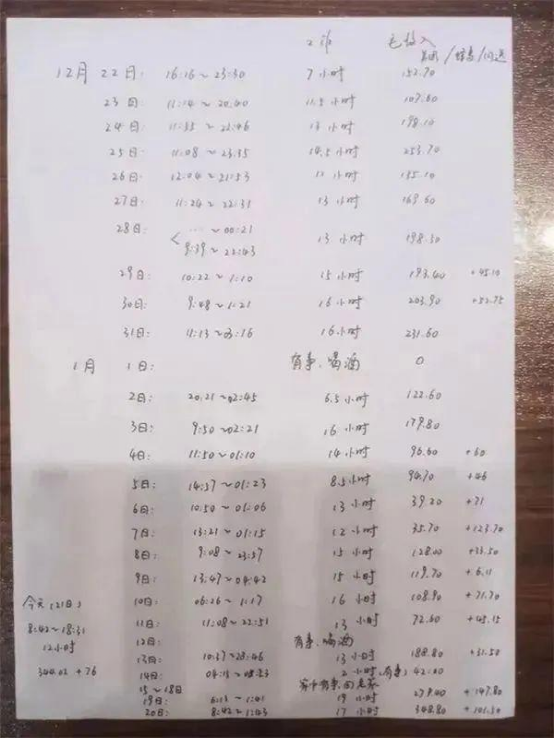 工作 毛收入
12月 22日: 16:16~23:30 7小时 152.70
23日: 11:14~20:40 11.5小时 107.60
24日: 11:35~22:46 13小时 198.10
25日: 11:08~23:35 14.5小时 253.70
26日: 12:04~21:53 11小时 135.10
27日: 11:24~22:31 13小时 169.60
28日: ...~00:21
9:39~22:43 13小时 198.50
29日: 10:22~1:10 15小时 193.40 +45.10
30日: 9:48~1:21 16小时 203.90 +52.75
31日: 11:13~03:16 16小时 231.60
1月 1日: 有事、喝酒 0
2日: 20:21~02:45 6.5小时 122.60
3日: 9:50~02:21 16小时 179.80
4日: 11:50~01:10 14小时 96.60 +60
5日: 14:37~01:23 8.5小时 94.70 +46
6日: 10:50~01:06 13小时 39.20 +31
7日: 13:21~01:15 12小时 35.70 +123.70
8日: 9:08~23:57 15小时 128.00 +33.50
9日: 13:47~04:42 15小时 119.70 +6.11
今天(21日) 10日: 06:26~1:17 16小时 108.90 +71.70
8:42~18:31 11日: 11:08~22:51 13小时 72.60 +45.15
12小时 12日: 有事、喝酒
13日: 10:37~28:46 13小时 188.80 +31.50
344.02+76 14日: 2小时(有事) 42.00
15~18日 有事、回老家
19日: 6:13~1:41 19小时 279.00 +147.80
20日: 8:42~1:43 17小时 348.80 +101.30